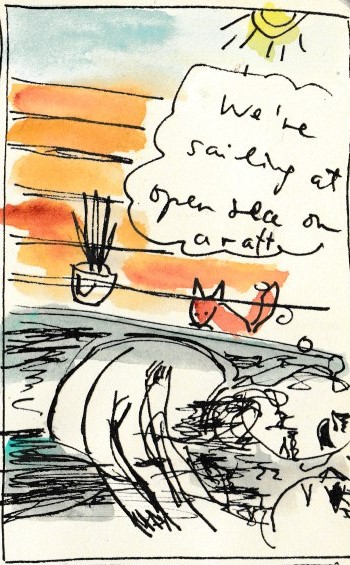 We're
sailing at
open sea on
a raft